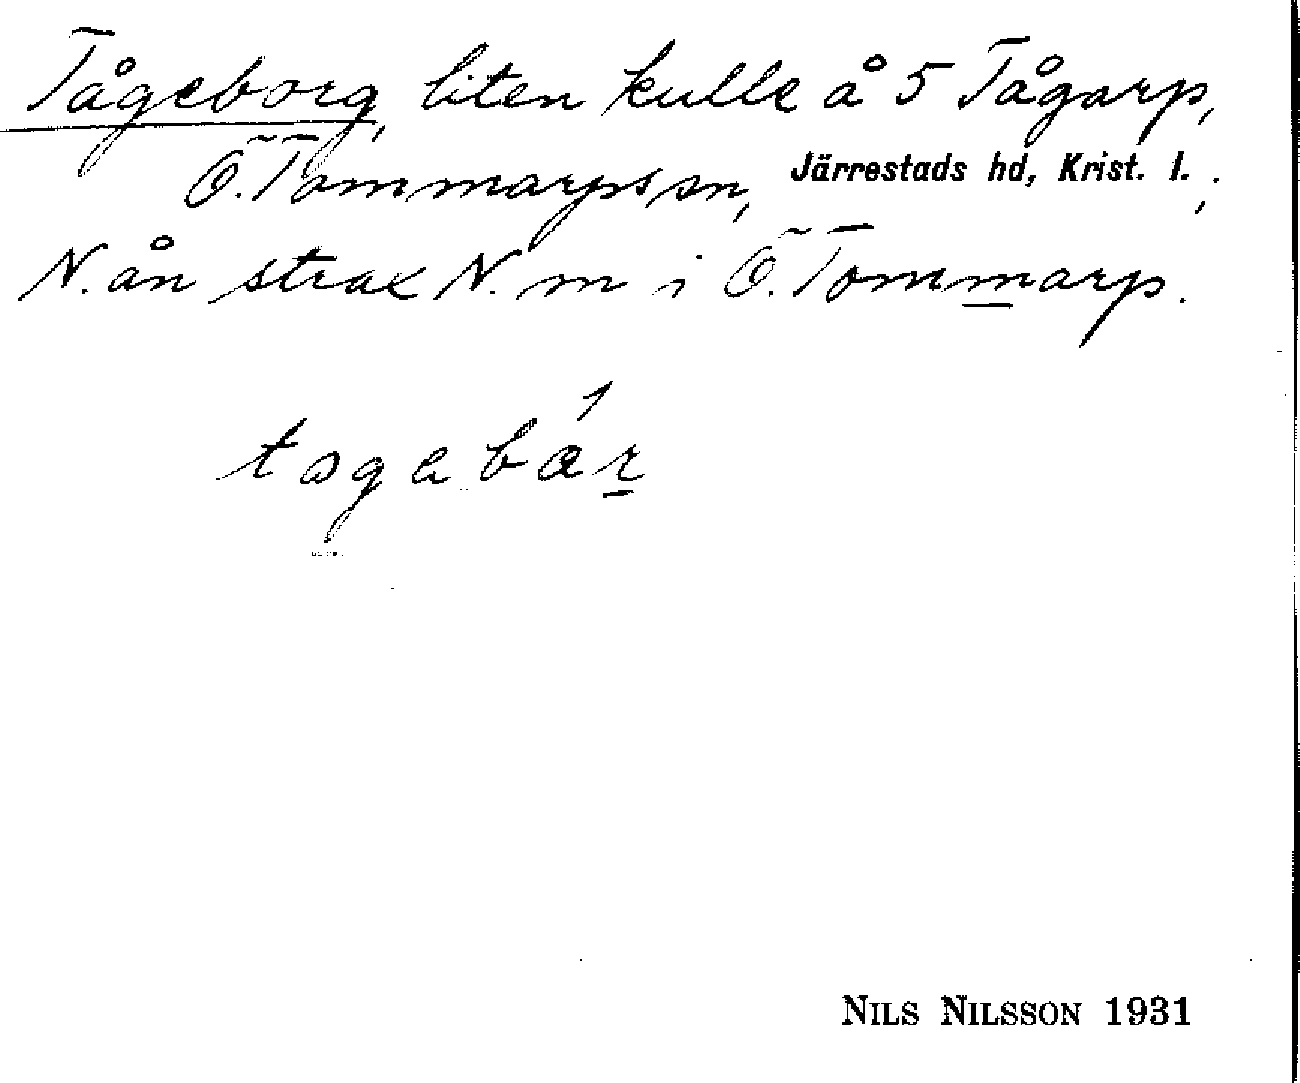 Tågeborg, liten kulle å 5 Tågarp,
Ö. Tommarps sn, Järrestads hd, Krist. l. ;
N. ån strax N. m i Ö. Tommarp.
NILS NILSSON 1931